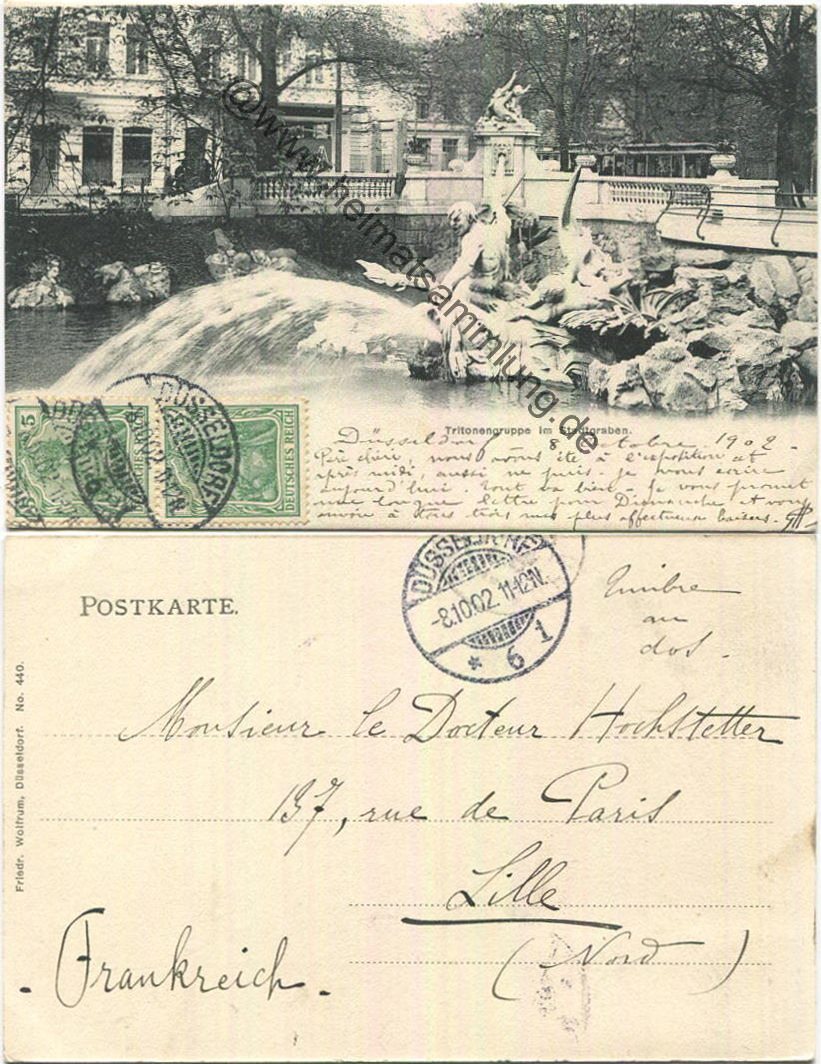 @www.heimatsammlung.de
Tritonengruppe im Stadtgraben.
Düsseldorf 8 octobre 1902
chéri, nous avons été à l'exposition cet
après midi, aussi ne puis-je vous écrire
aujourd'hui. Tout va bien. Je vous promet
une longue lettre pour Dimanche et vous
envoie à tous trois mes plus affectueux baisers.
5
DEUTSCHES REICH
DÜSSELDORF
DEUTSCHES REICH
POSTKARTE.
DÜSSELDORF
-8.10.02. 11-12N.
* 6 1
Timbre
au
dos.
Monsieur le Docteur Hochstetter
137, rue de Paris
Lille
(Nord)
- Frankreich -
Friedr. Wolfrum, Düsseldorf. No. 440.